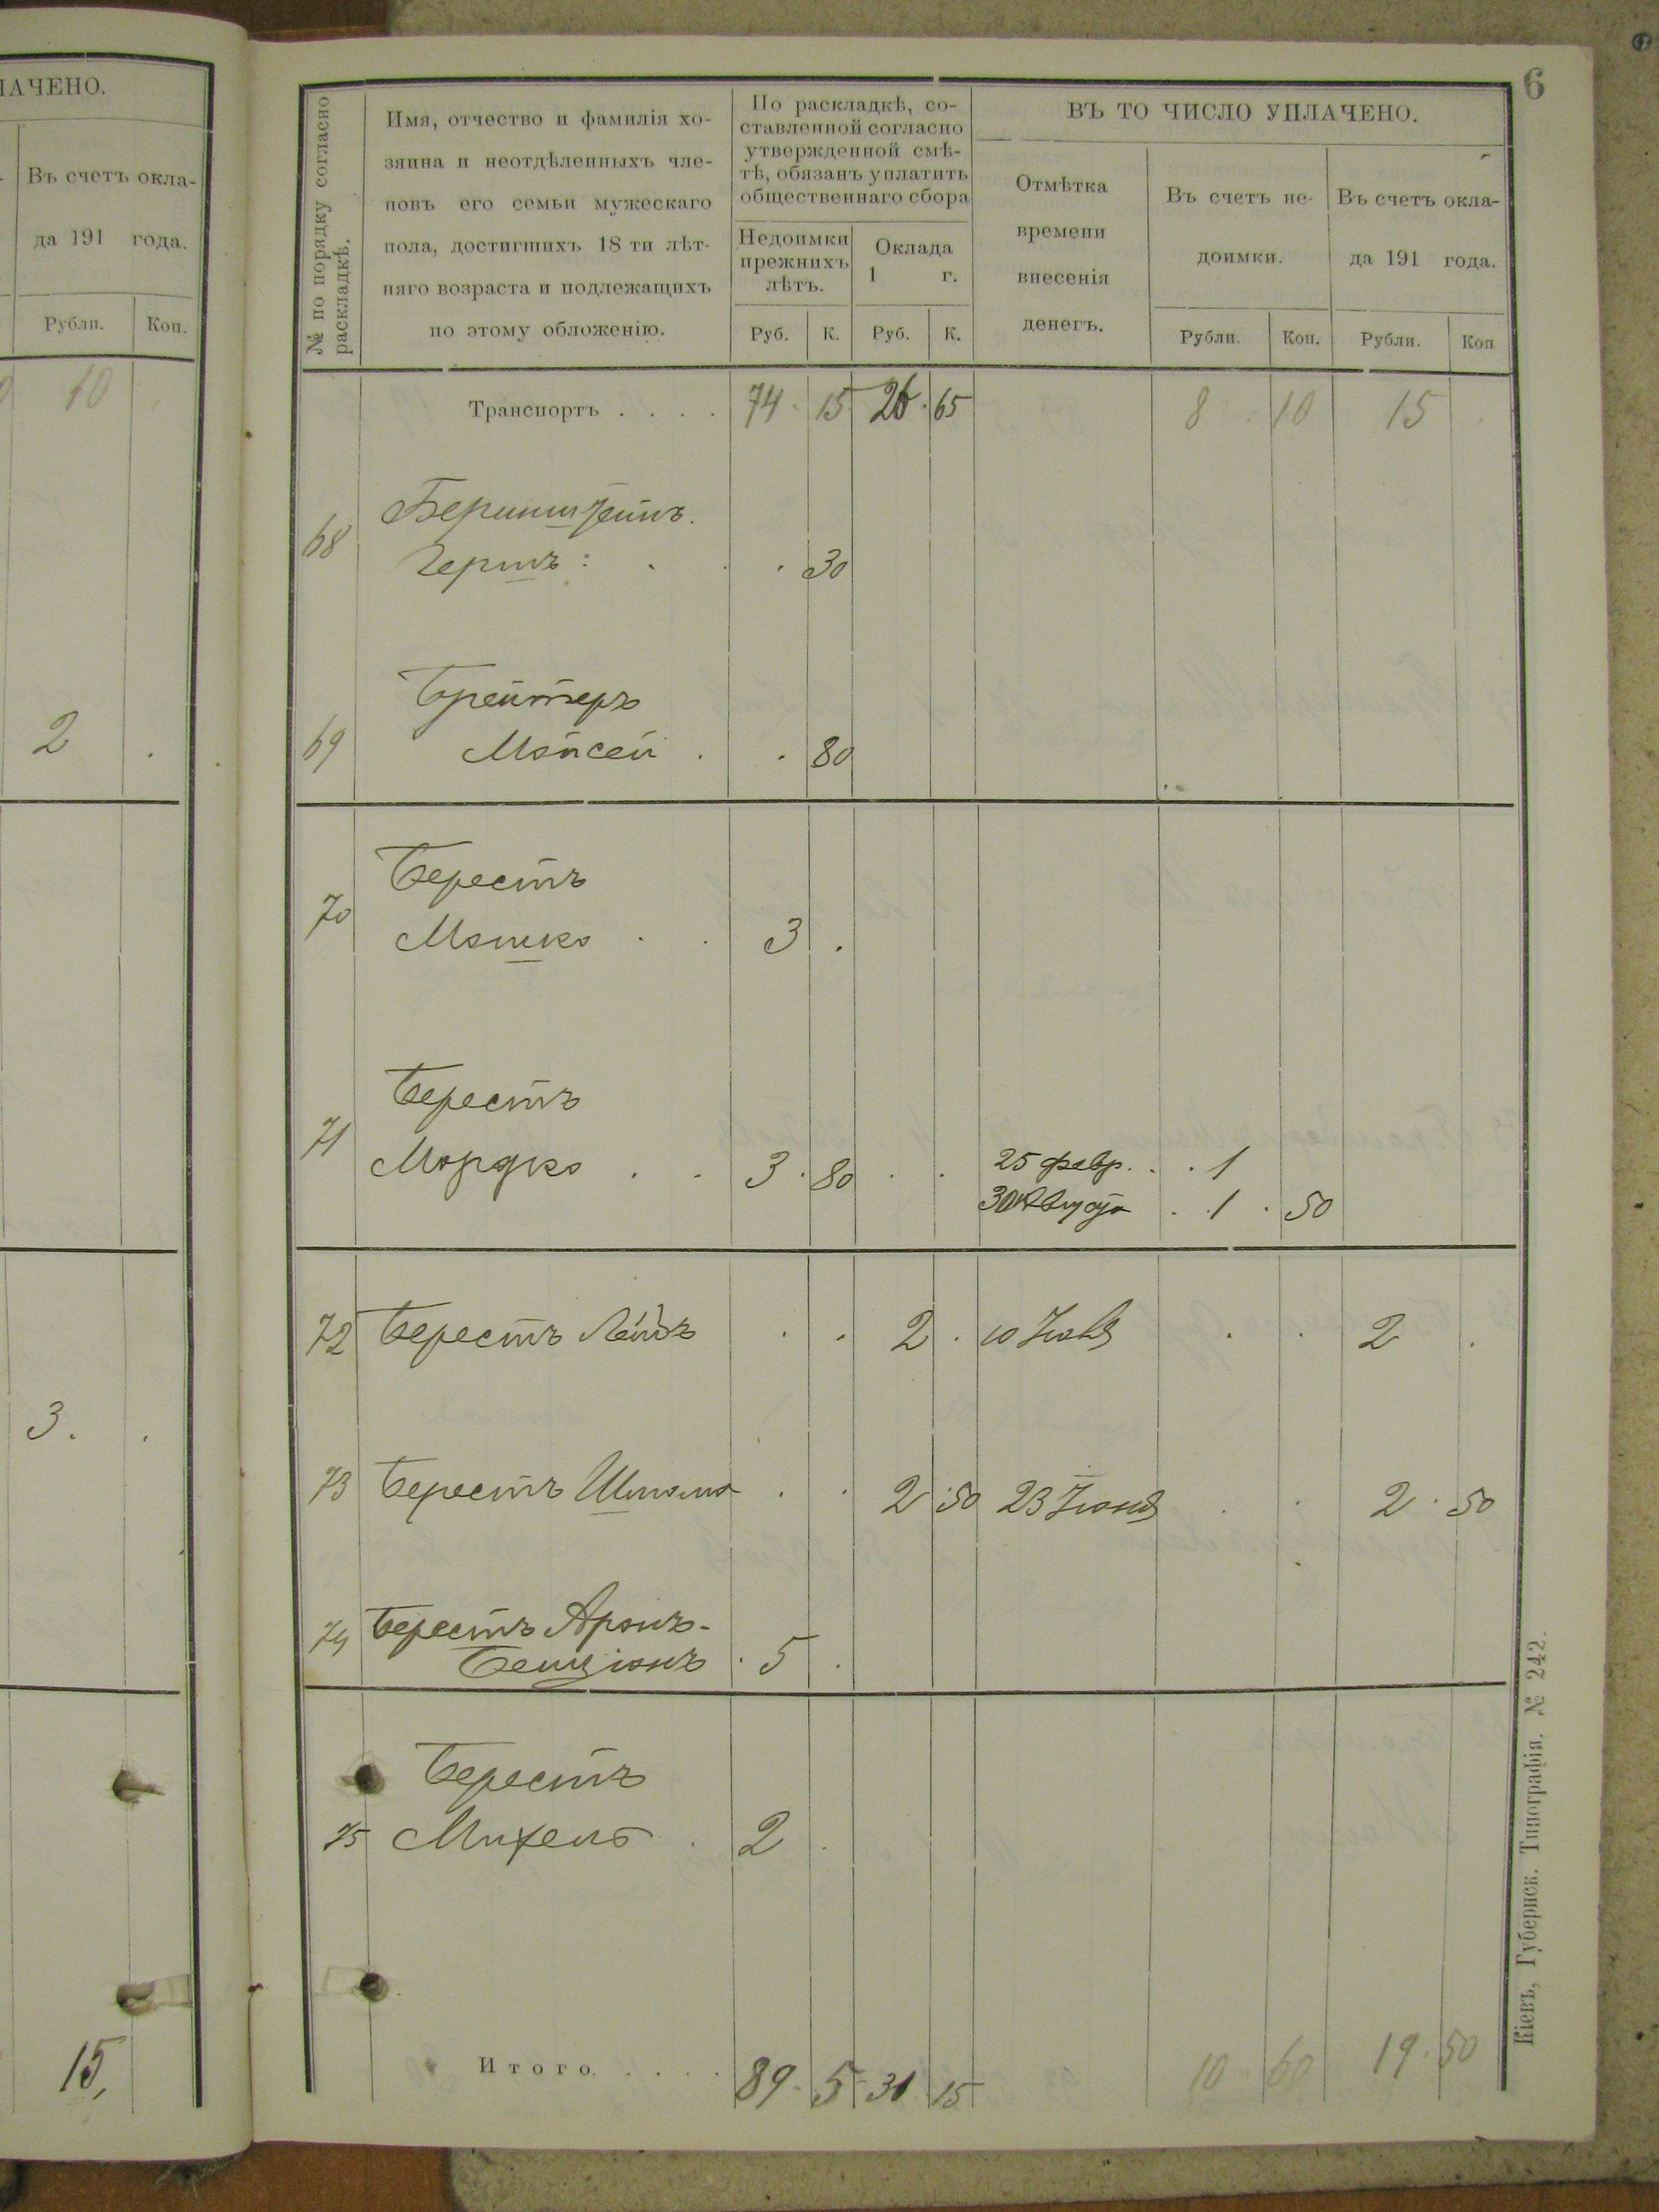 ЛАЧЕНО.
Въ счетъ окла-
да 191 года.
Рубли. Коп.
10
2 .
3. .
15,
6
№ по порядку согласно
раскладкѣ.
Имя, отчество и фамилія хо-
зяина и неотдѣленныхъ чле-
новъ его семьи мужескаго
пола, достигшихъ 18 ти лѣт-
няго возраста и подлежащихъ
по этому обложенію.
По раскладкѣ, со-
ставленной согласно
утвержденной смѣ-
тѣ, обязанъ уплатить
общественнаго сбора
Недоимки
прежнихъ
лѣтъ.
Руб. К.
Оклада
1 г.
Руб. К.
ВЪ ТО ЧИСЛО УПЛАЧЕНО.
Отмѣтка
времени
внесенія
денегъ.
Въ счетъ не-
доимки.
Рубли. Коп.
Въ счетъ окла-
да 191 года.
Рубли. Коп
Транспортъ . . . . 74 15 26 65 8 10 15
68 Бернштейнъ.
Гершъ : . . . 30
Брейтеръ
69 Мойсей . . 80
Берестъ
70 Мошко . . 3 .
Берестъ
71 Мордко . . 3 80 . . 25 февр. . . 1
30 Августа . 1 . 50
72 Берестъ Лейбъ . . 2 . 10 Іюля . . 2 .
73 Берестъ Шлома . . 2 50 23 Іюня . . 2 50
74 Берестъ Аронъ-
Бенціонъ . 5 .
Берестъ
75 Михель . 2 .
Итого . . . . 89 5 31 15 10 60 19 50
Кіевъ, Губернск. Типографія. № 242.